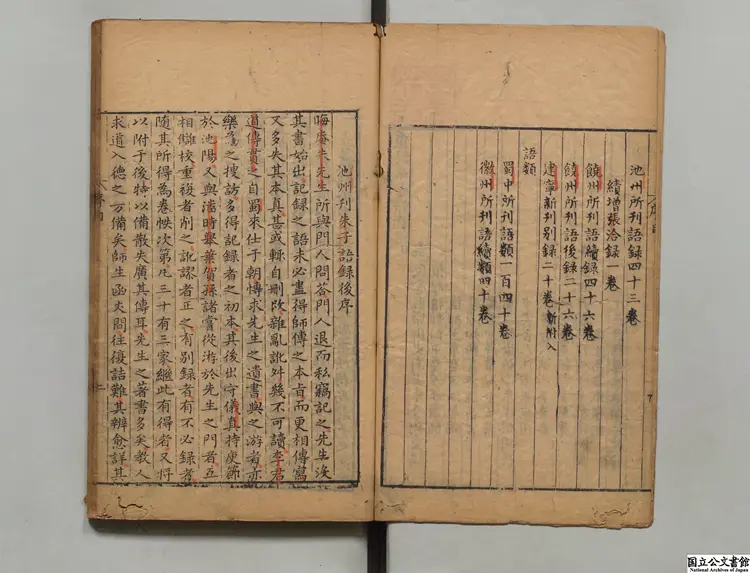 池州所刊語錄四十三卷
續增張洽錄一卷
饒州所刊語續錄四十六卷
饒州所刊語後錄二十六卷
建寧新刊別錄二十卷新附入
語類
蜀中所刊語類一百四十卷
徽州所刊語續類四十卷
池州刊朱子語錄後序
晦庵朱先生所與門人問荅門人退而私竊記之先生沒
其書始出記錄之語未必盡得師傳之本旨而更相傳寫
又多失其本真甚或輒自刪改雜亂訛舛幾不可讀李君
道傳貫之自蜀來仕于朝慱求先生之遺書與之游者亦
樂為之搜訪多得記錄者之初本其後出守儀真持庾節
於池陽又與潘時舉葉賀孫諸嘗從游於先生之門者互
相讎校重複者削之訛謬者正之有別錄者有不必錄者
隨其所得為卷帙次第凡三十有三家繼此有得者又將
以附于後特以備散失廣其傳耳先生之著書多矣教人
求道入德之方備矣師生函丈間往復詰難其辨愈詳其
國立公文書館
National Archives of Japan